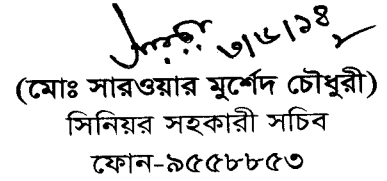 ৩/৫/১৪
(মোঃ সারওয়ার মুর্শেদ চৌধুরী)
সিনিয়র সহকারী সচিব
ফোন-৯৫৫৮৮৫৩